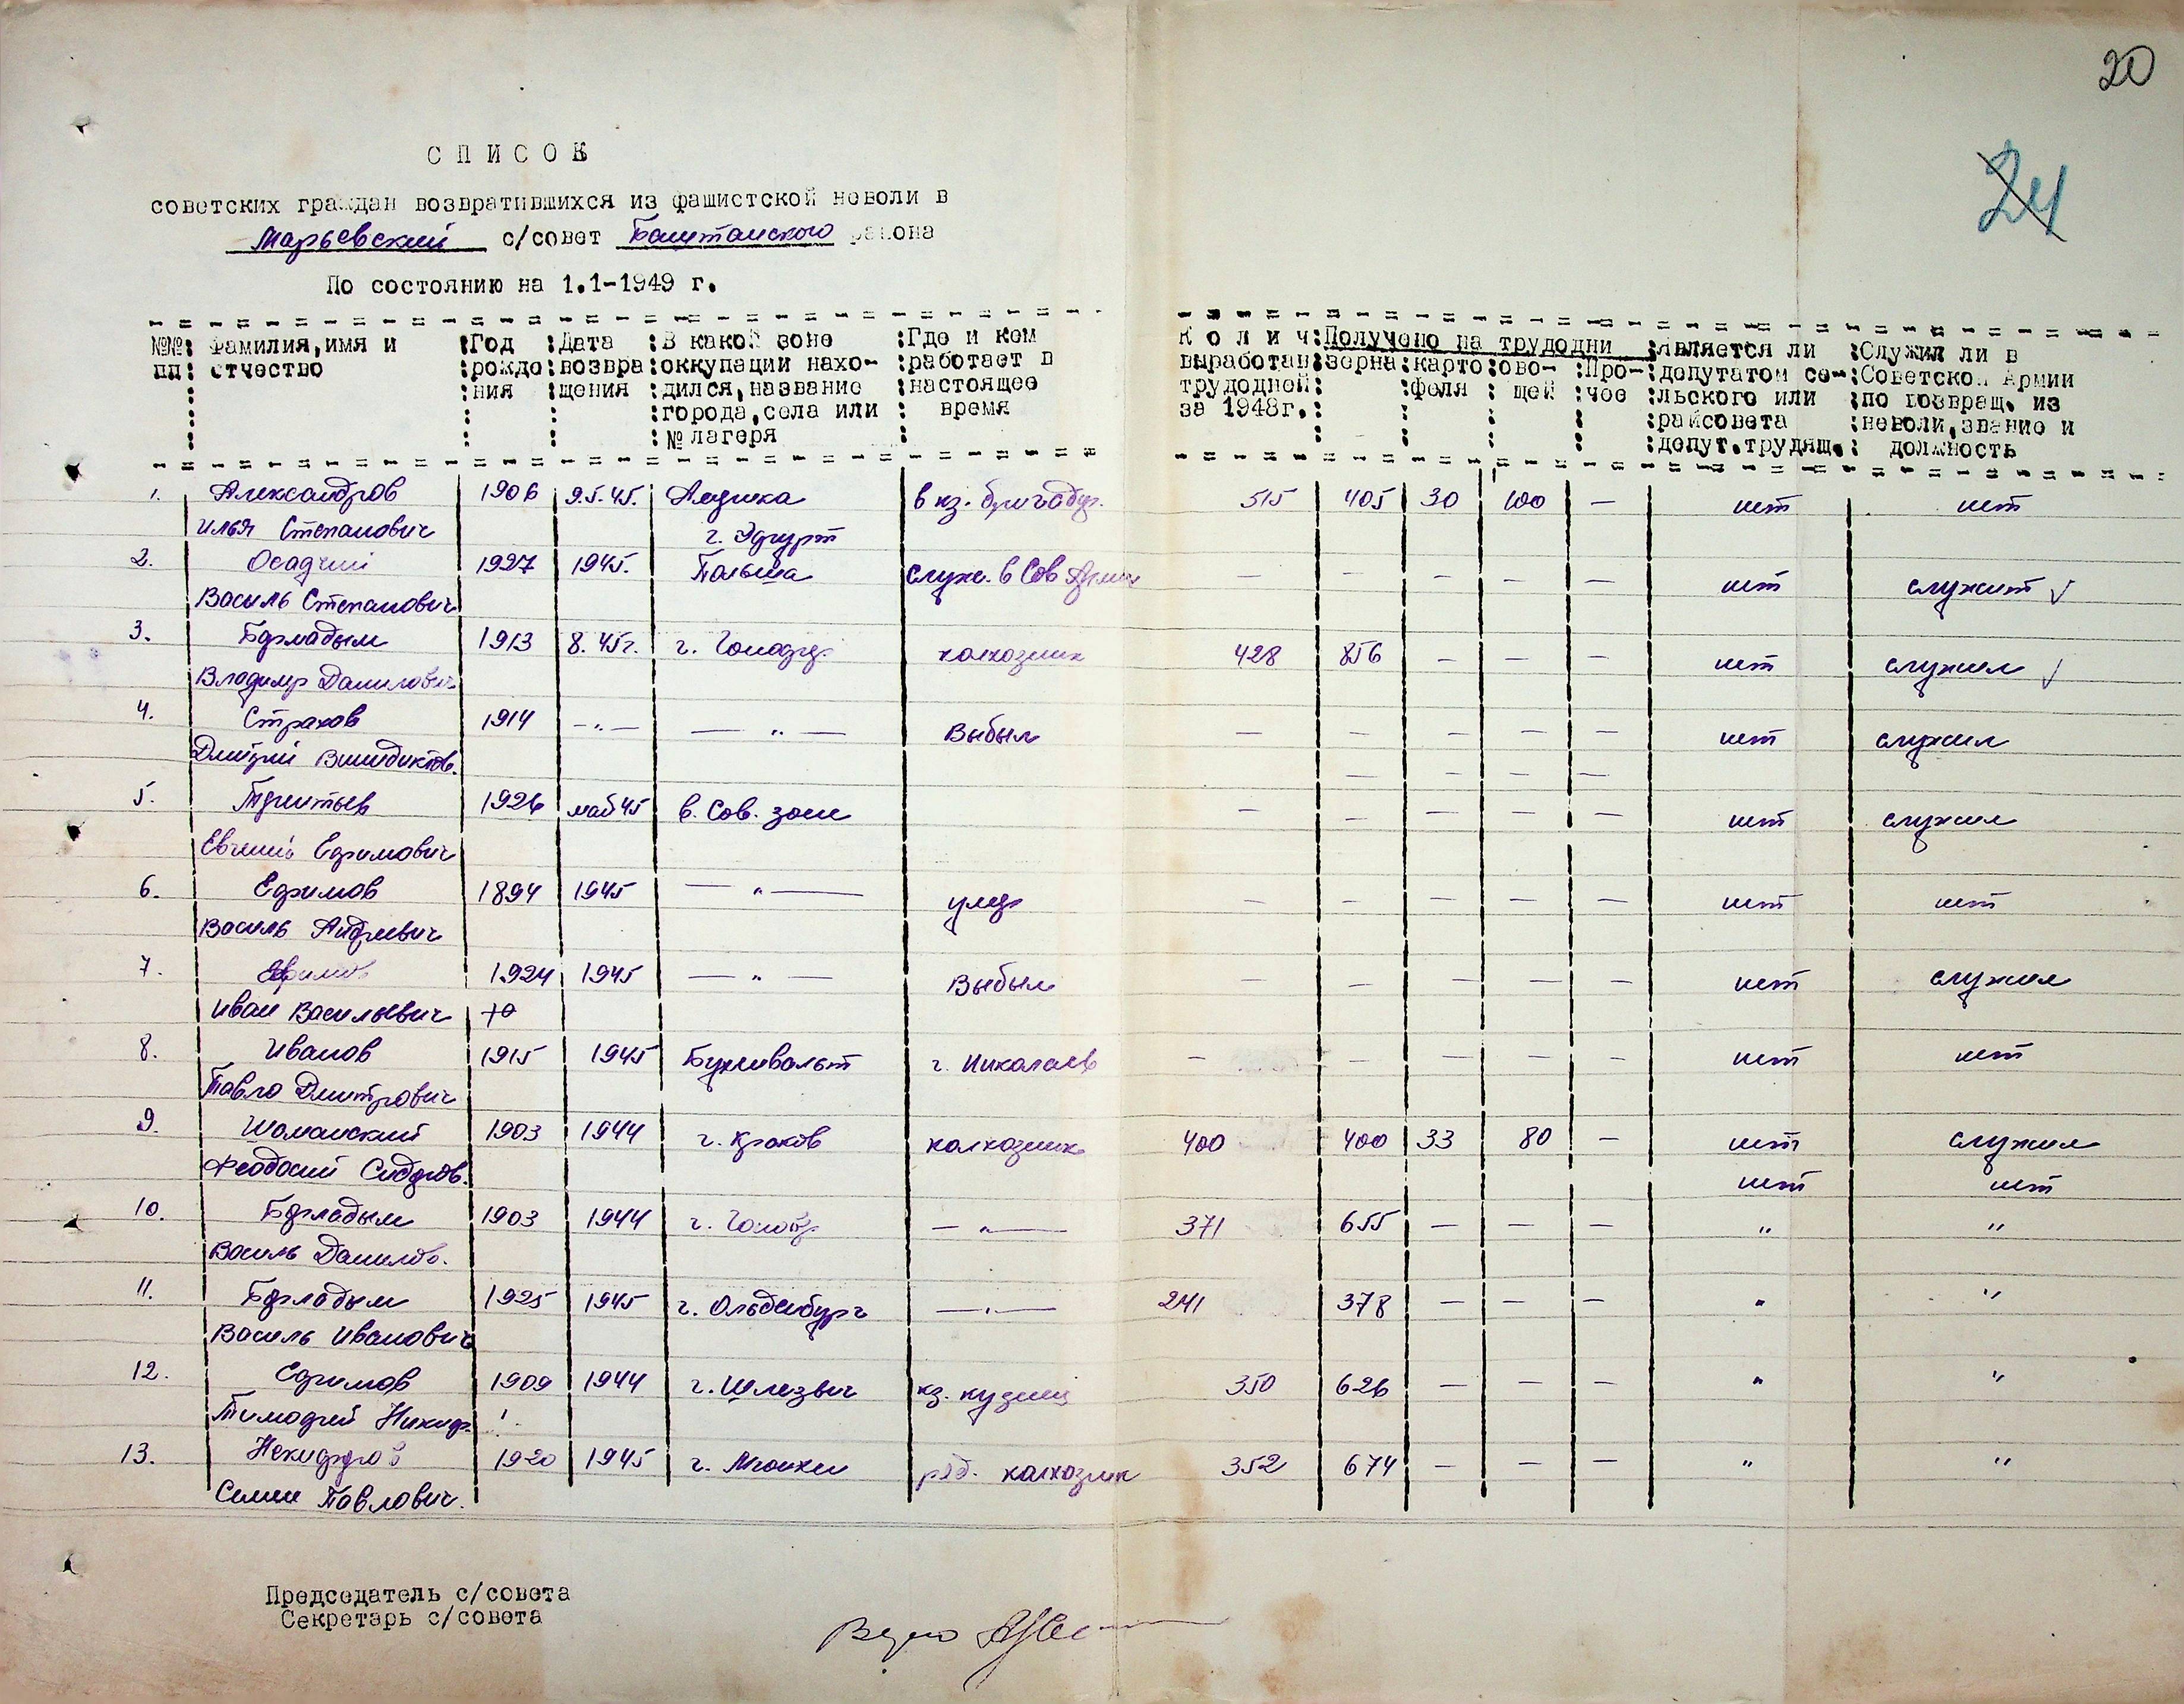 20
24
СПИСОК
советских граждан возвратившихся из фашистской неволи в
Марьевский с/совет Баштанского района
По состоянию на 1.1-1949 г.
№№ : Фамилия, имя и : Год : Дата : В какой зоне : Где и кем К о л и ч : Получено на трудодни : Является ли : Служил ли в
пп : отчество : рожде : возвра : оккупации нахо- : работает в выработан : зерна : карто : ово- : Про- : депутатом се- : Советской Армии
: ния : щения : дился, название : настоящее трудодней : : феля : щей : чое : льского или : по возвращ. из
: города, села или : время за 1948г. : райсовета : неволи, звание и
: № лагеря : депут. трудящ. : должность
1. Александров 1906 9.5.45. в кз. 515 405 30 100 — нет нет
Илья Степанович г.
2. Осадчий 1927 1945. Польша служ. в Сов Армии — — — — — нет служит √
Василь Степанович
3. 1913 8.45г. г. колхозник 428 856 — — — нет служил √
Владимир Данилович
4. Страхов 1914 —"— — " — Выбыл — — — — — нет служил
Дмитрий
— — — —
5. 1926 май 45 в. Сов. зоне — — — — — нет служил
Евгений Ефимович
6. Ефимов 1894 1945 — " — умер — — — — — нет нет
Василь Андреевич
7. Ефимов 1924 1945 — " — Выбыл — — — — — нет служил
Иван Васильевич
8. Иванов 1915 1945 Бухенвальт г. Николаев — — — — — нет нет
Павло Дмитрович
9. Шоманский 1903 1944 г. Краков колхозник 400 400 33 80 — нет служил
Феодосий Сидоров. нет нет
10. 1903 1944 г. — " — 371 655 — — — " "
Василь Данилов.
11. 1925 1945 г. Ольденбург — " — 241 378 — — — " "
Василь Иванович
12. Ефимов 1909 1944 г. Шлезвич кз. кузнец 350 626 — — — " "
Тимофей Никиф.
13. Некифоров 1920 1945 г. ряд. колхозник 352 674 — — — " "
Семен Павлович.
Председатель с/совета
Секретарь с/совета